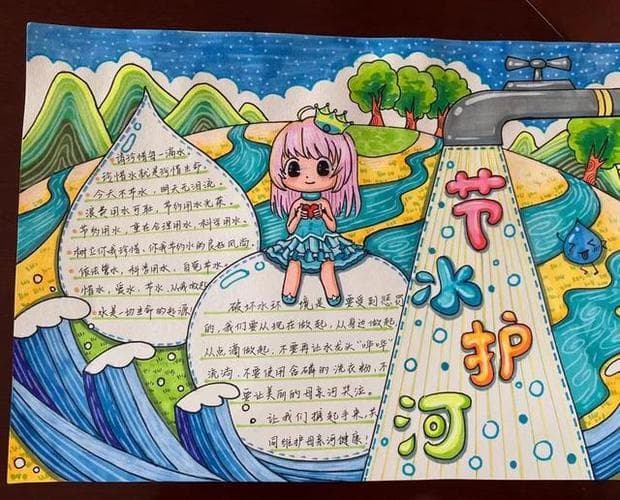 请珍惜每一滴水
珍惜水就是珍惜生命
今天不节水，明天无泪流。
浪费用水可耻，节约用水光荣。
节约用水，重在合理用水，科学用水。
树立惜水意，节约水的良好风尚。
依法管水，科学用水，自觉节水。
惜水、爱水、节水，从我做起
水是一切生命的起源
破坏水环境是要受到惩罚
的，我们要从现在做起，从身边做起
从点滴做起，不要再让水龙头“哗哗”
流淌，不要使用含磷的洗衣粉，不
要让美丽的母亲河哭泣。
让我们携起手来，共
同维护母亲河健康！
节
水
护
河